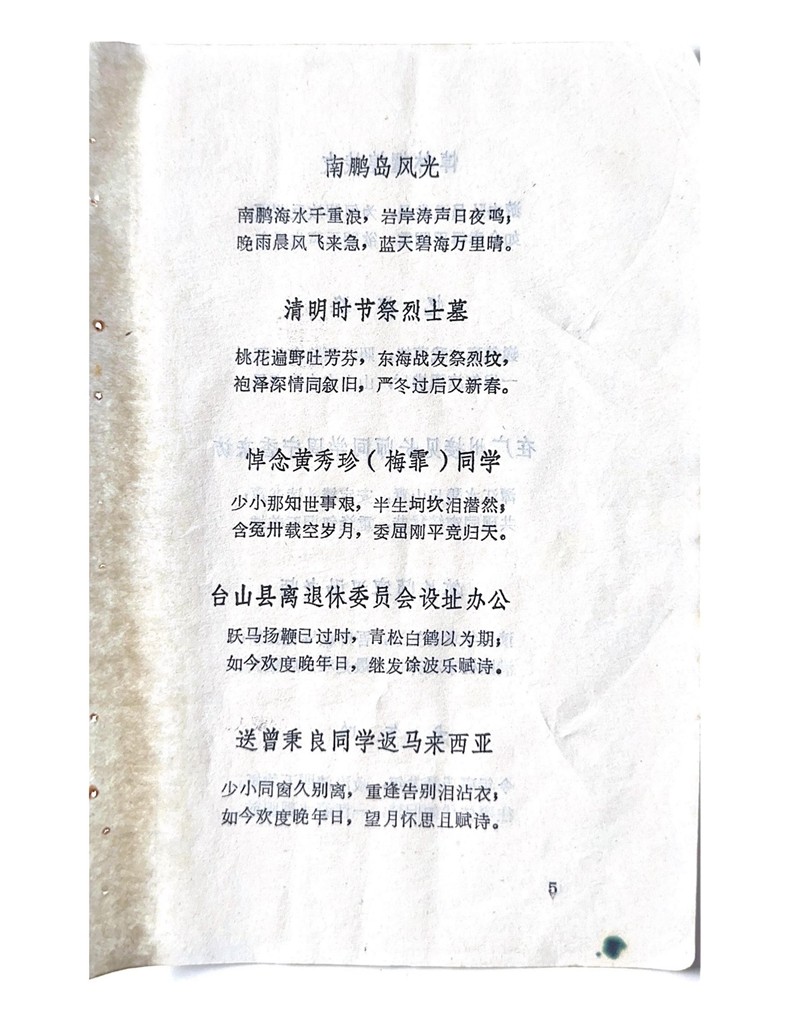 南鹏岛风光
南鹏海水千重浪，岩岸涛声日夜鸣；
晚雨晨风飞来急，蓝天碧海万里晴。
清明时节祭烈士墓
桃花遍野吐芳芬，东海战友祭烈坟，
袍泽深情同叙旧，严冬过后又新春。
悼念黄秀珍（梅霏）同学
少小那知世事艰，半生坷坎泪潸然；
含冤卅载空岁月，委屈刚平竞归天。
台山县离退休委员会设址办公
跃马扬鞭已过时，青松白鹤以为期；
如今欢度晚年日，继发馀波乐赋诗。
送曾秉良同学返马来西亚
少小同窗久别离，重逢告别泪沾衣，
如今欢度晚年日，望月怀思且赋诗。
5